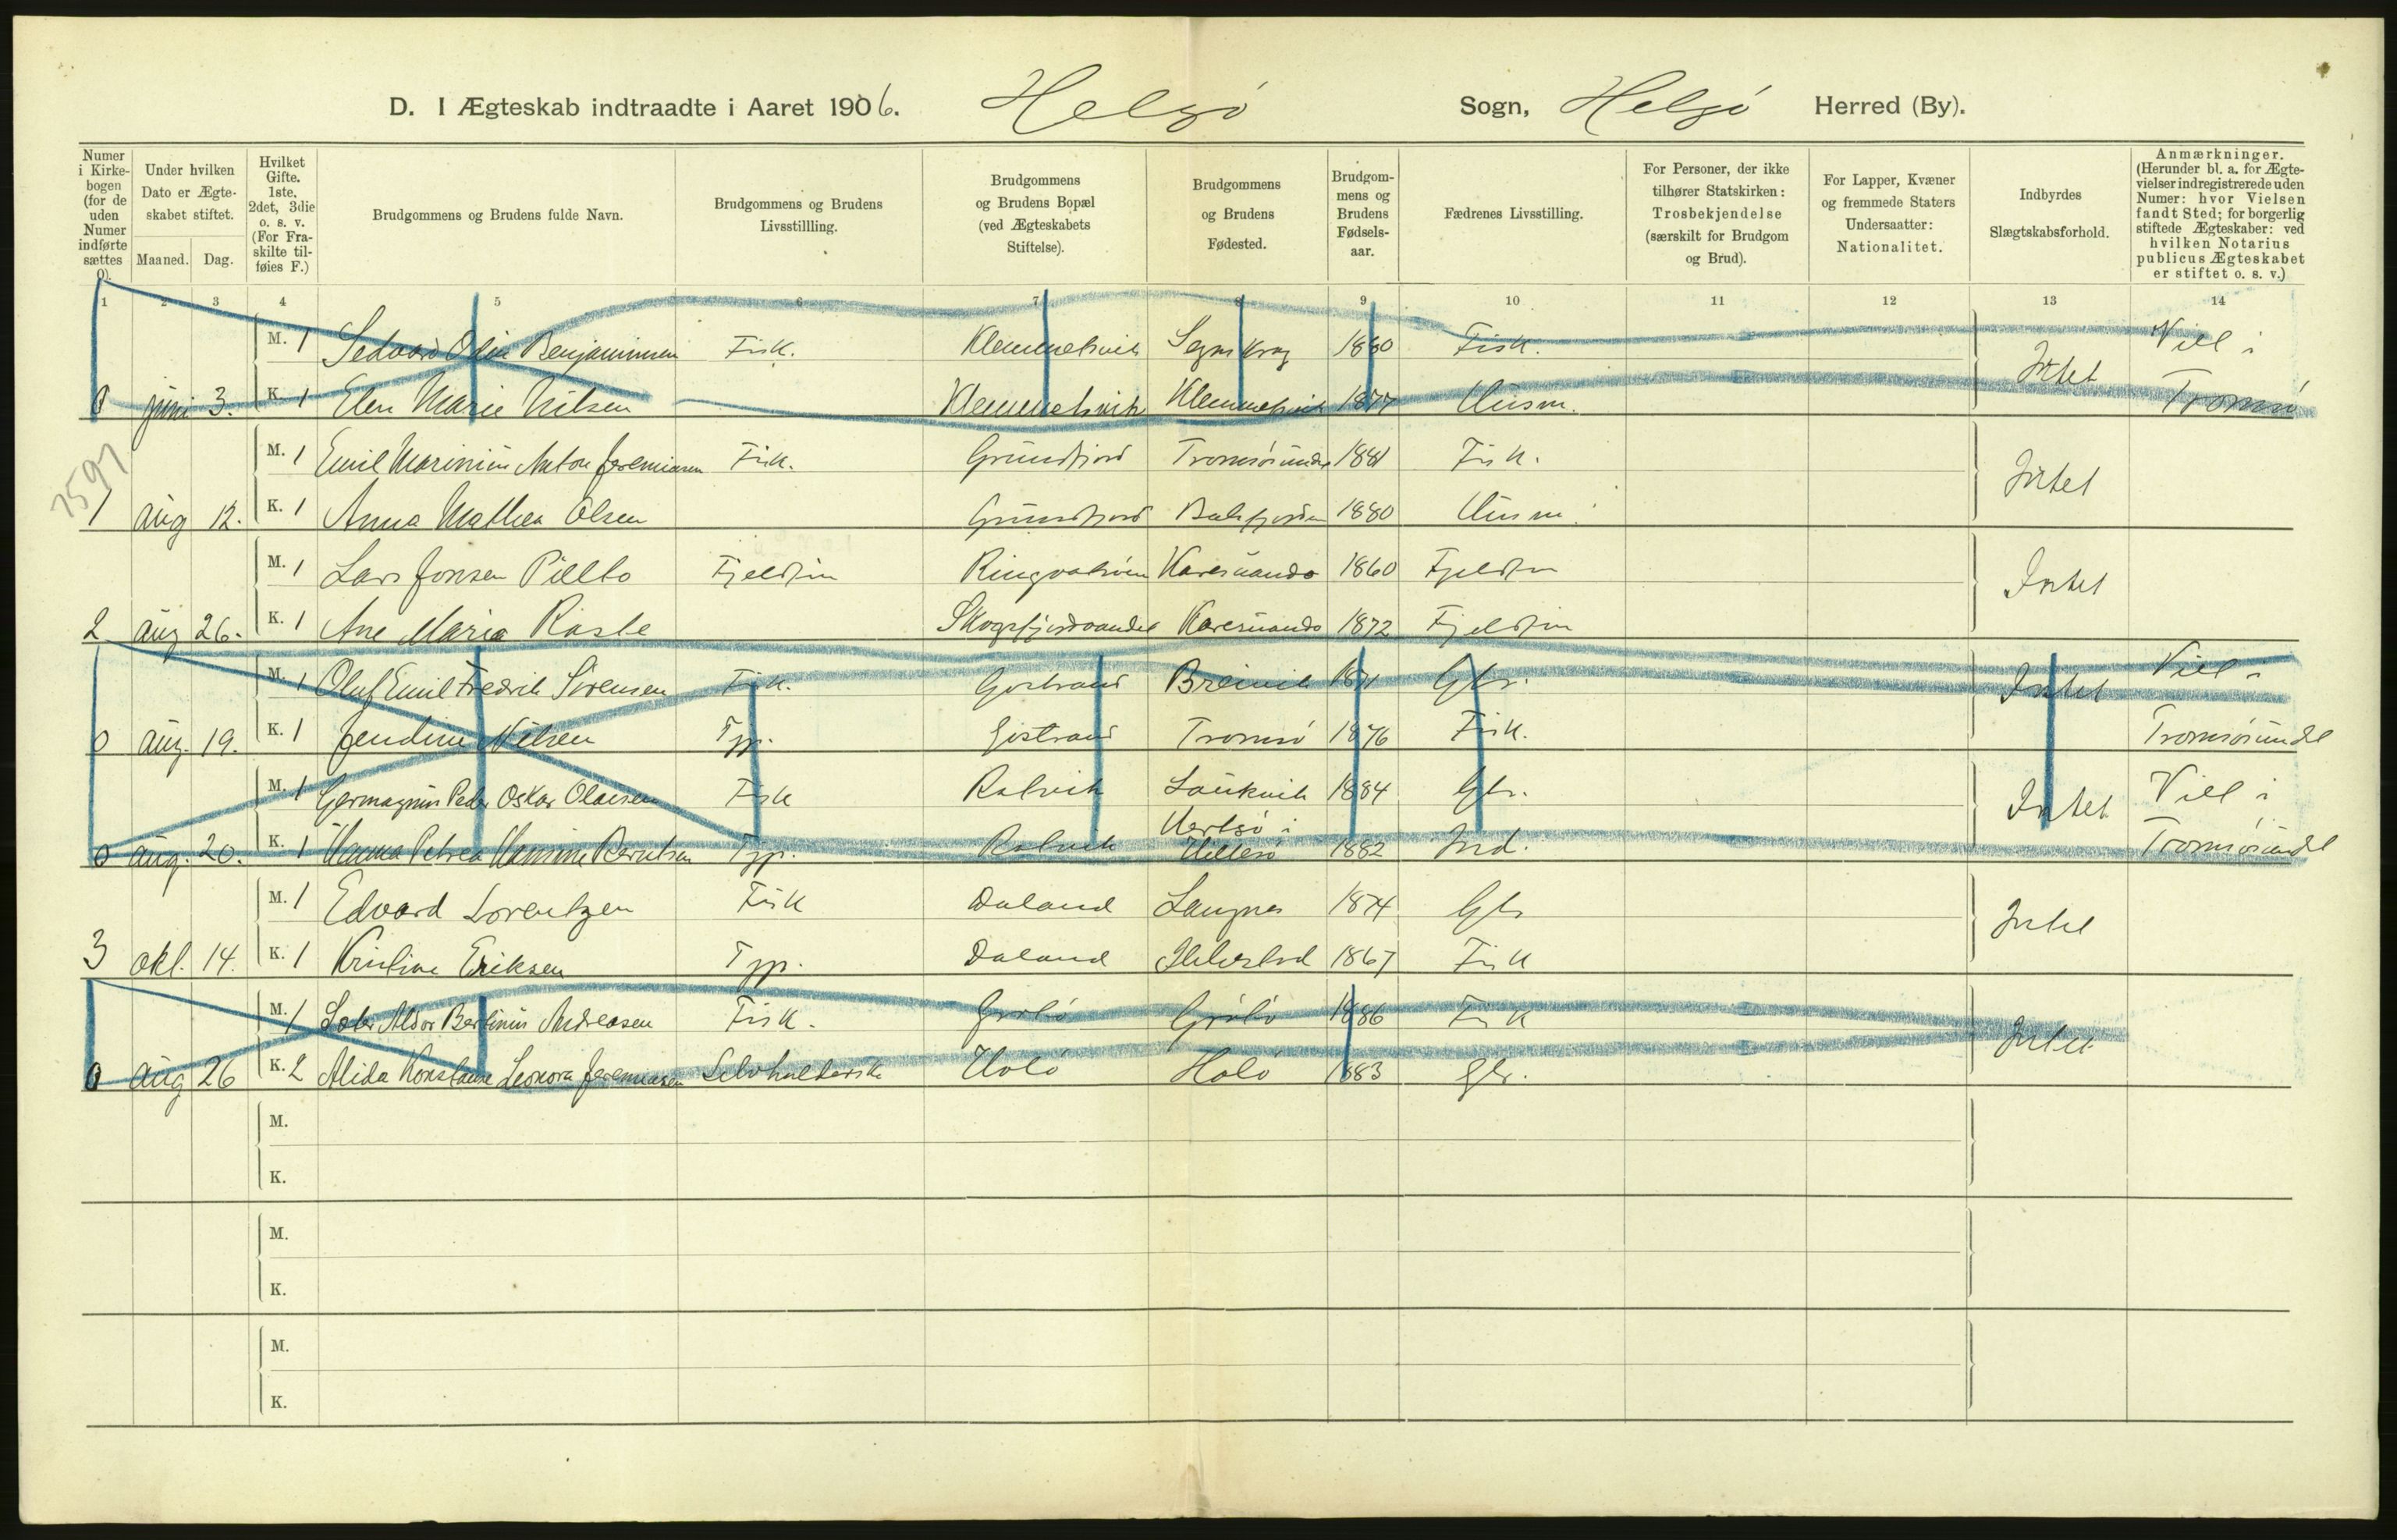 D. I Ægteskab indtraadte i Aaret 1906. Helgö Sogn, Helgö Herred (By).
Numer i Kirkebogen (for de uden Numer indførte sættes 0).
Under hvilken Dato er Ægteskabet stiftet.
Maaned. Dag.
Hvilket Gifte. 1ste, 2det, 3die o. s. v. (For Fraskilte tilføies F.)
Brudgommens og Brudens fulde Navn.
Brudgommens og Brudens Livsstillling.
Brudgommens og Brudens Bopæl (ved Ægteskabets Stiftelse).
Brudgommens og Brudens Fødested.
Brudgommens og Brudens Fødselsaar.
Fædrenes Livsstilling.
For Personer, der ikke tilhører Statskirken: Trosbekjendelse (særskilt for Brudgom og Brud).
For Lapper, Kvæner og fremmede Staters Undersaatter: Nationalitet.
Indbyrdes Slægtskabsforhold.
Anmærkninger. (Herunder bl. a. for Ægtevielser indregistrerede uden Numer: hvor Vielsen fandt Sted; for borgerlig stiftede Ægteskaber: ved hvilken Notarius publicus Ægteskabet er stiftet o. s. v.)
1 2 3 4 5 6 7 8 9 10 11 12 13 14
M. 1 Sedvard Odin Benjaminsen Fisk. 1880 Fisk. Intet Viel i
0 juni 3. K. 1 Elen Marie Nilsen 1877 Husm. Tromsö
7591
M. 1 Emil Marinius Anton Jeremiasen Fisk. Grundfjord Tromsösundet 1881 Fisk. Intet
1 aug 12. K. 1 Anna Mathea Olsen Grundfjord Balsfjorden 1880 Husm.
M. 1 Lars Jonsen Pilto Fjeldfin Ringvatsöen Karesuando 1860 Fjeldfin Intet
2 aug 26. K. 1 Ane Maria Raste Skogsfjordvandet Karesuando 1872 Fjeldfin
M. 1 Oluf Emil Fredrik Sörensen Fisk. Breivik 1871 Gbr. Intet Viel i
0 aug. 19. K. 1 Jendine Nilsen Tjp. Tromsö 1876 Fisk. Tromsösundet
M. 1 Peder Oskar Olaisen Fisk Ralvik Laukvik 1884 Gbr. Intet Viel i
0 aug. 20. K. 1 Hanna Petrea Hansine Berntsen Tjp. Ralvik i Hillesö 1882 Ind. Tromsösundet
M. 1 Edvard Lorentzen Fisk Daland Langnes 1874 Gbr Intet
3 okt. 14. K. 1 Kristine Eriksen Tjp. Daland 1867 Fisk
M. 1 Andreasen Fisk. Grölö 1886 Fisk Intet
0 aug 26 K. 2 Alida Konstanse Leonora Jeremiasen Selvholdersk Holö Holö 1883 Gbr.
M.
K.
M.
K.
M.
K.